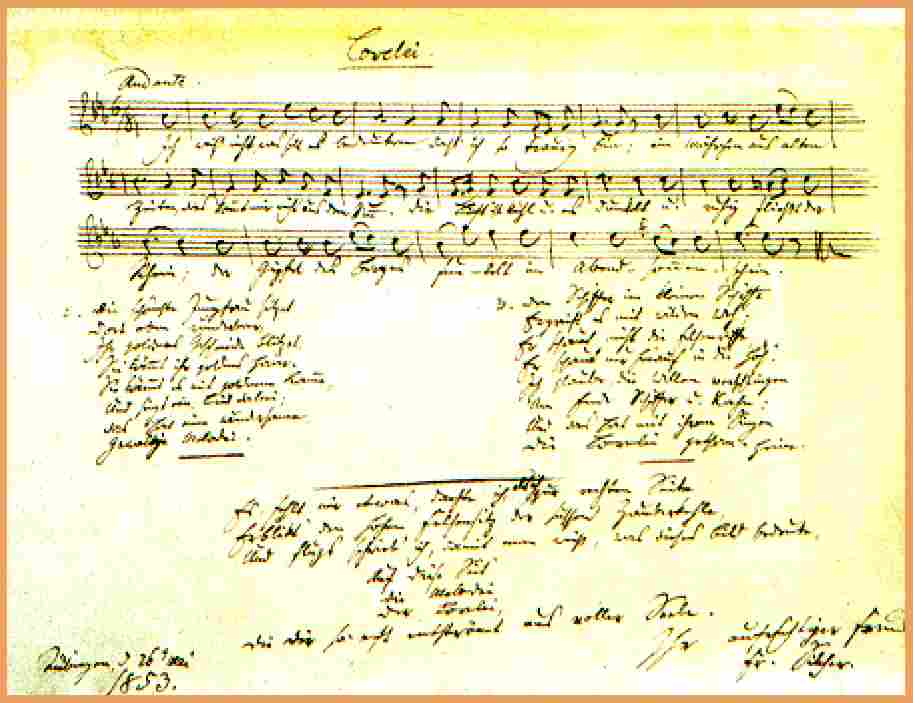 Lorelei.
Andante.
ich weiß nicht was soll es bedeuten daß ich so traurig bin; ein Mährchen aus alten
Zeiten, das kommt mir nicht aus dem Sinn. die Luft ist kühl u. es dunkelt u. ruhig fließt der
Rhein; der Gipfel des Berges funkelt im Abend-sonnen-schein.
2. die schönste Jungfrau sitzet
dort oben wunderbar,
ihr goldnes Geschmeide blitzet
Sie kämmt ihr goldenes Haar.
Sie kämmt es mit goldenem Kamme,
und singt ein Lied dabei;
das hat eine wundersame
Gewaltige Melodei.
3. den Schiffer im kleinen Schiffe
Ergreift es mit wildem Weh;
Er schaut nicht die Felsenriffe,
Er schaut nur hinauf in die Höh.
ich glaube, die Wellen verschlingen
Am Ende Schiffer u. Kahn;
und das hat mit ihrem Singen
die Lorelei gethan.
Es fehlt mir etwas, dachte ich, zur rechten Seite
Erblickt den hohen Felsensitz der
und flugs schrieb ich, damit man weiß, was dieses Bild bedeute,
Auf diese Seite
die Melodei
der Lorelei,
die dir so aus voller Seele.
Ihr aufrichtiger Freund
Fr. Silcher.
Tübingen, d. 26t Mai
1853.